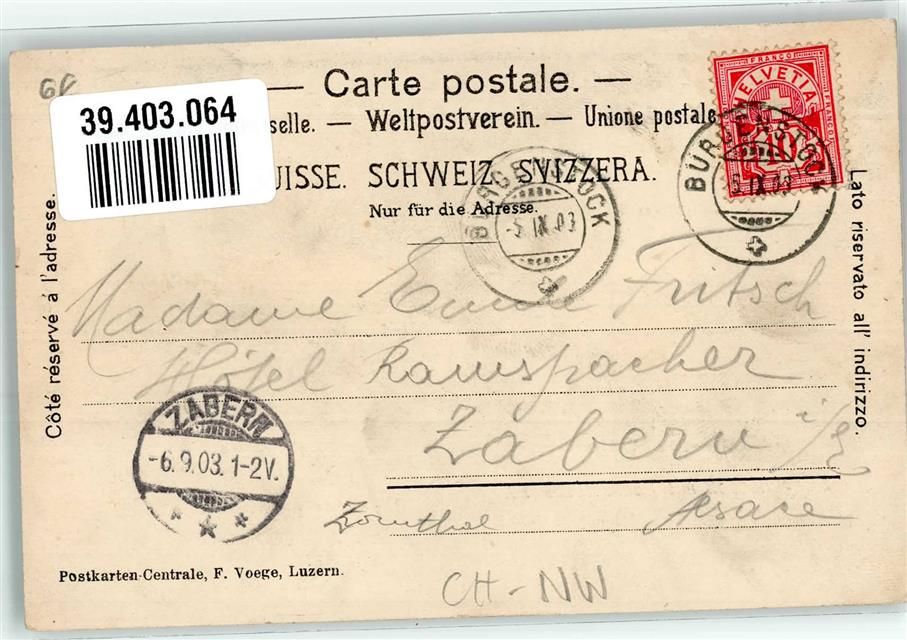 GF
39.403.064
— Carte postale. —
selle. — Weltpostverein. — Unione postale
UISSE. SCHWEIZ. SVIZZERA.
Nur für die Adresse.
FRANCO
HELVETIA
FRANCO
10
BÜRGENSTOCK
-5.IX.03
BÜRGENSTOCK
-5.IX.03
Côté réservé á l'adresse.
Lato riservato all' indirizzo.
Madame Emma Fritsch
Hôtel Ramspacher
Zabern i/E
Zornthal Alsace
ZABERN
-6.9.03.1-2V.
Postkarten-Centrale, F. Voege, Luzern.
CH-NW